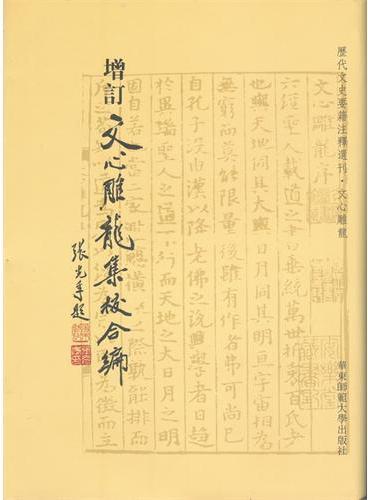 歷代文史要籍注釋選刊·文心雕龍
華東師範大學出版社
增訂
文心雕龍集校合編
張光年題
文心雕龍序
六經聖人載道之書也垂統萬世折衷百氏者
也與天地同其大日月同其明亘宇宙相為
無窮而莫能限量後雖有作者弗可尚已
自孔子沒由漢以降老佛之說興學者日趨
於異端聖人之道不行而天地之大日月之明
固自若 當二家 橫 之際孰能排而